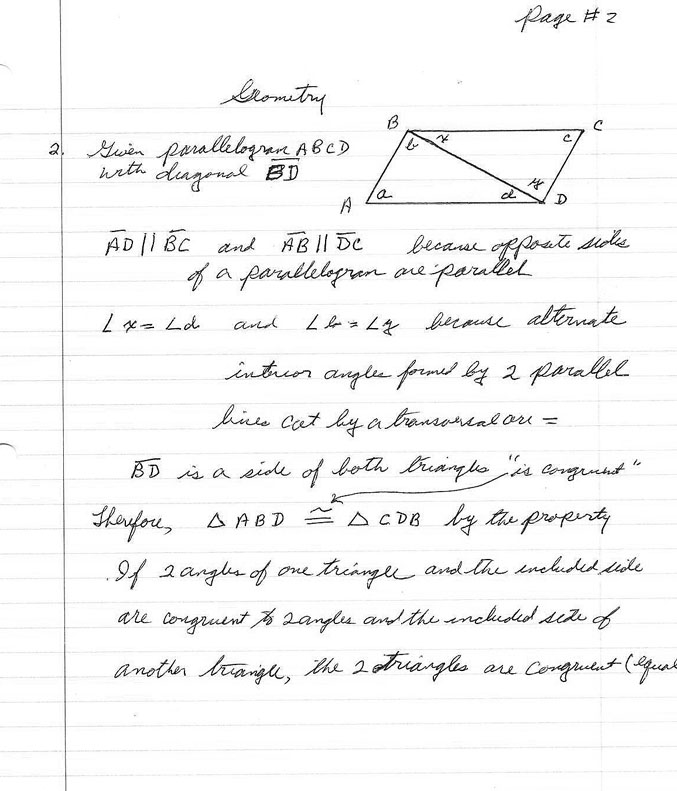 Page # 2
Geometry
2. Given parallelogram ABCD
with diagonal BD
B C
b x c
a d y
A D
AD || BC and AB || DC because opposite sides
of a parallelogram are parallel
∠x = ∠d and ∠b = ∠y because alternate
interior angles formed by 2 parallel
lines cut by a transversal are =
BD is a side of both triangles "is congruent"
Therefore, △ ABD ≅ △ CDB by the property
If 2 angles of one triangle and the included side
are congruent to 2 angles and the included side of
another triangle, the 2 triangles are congruent (equal